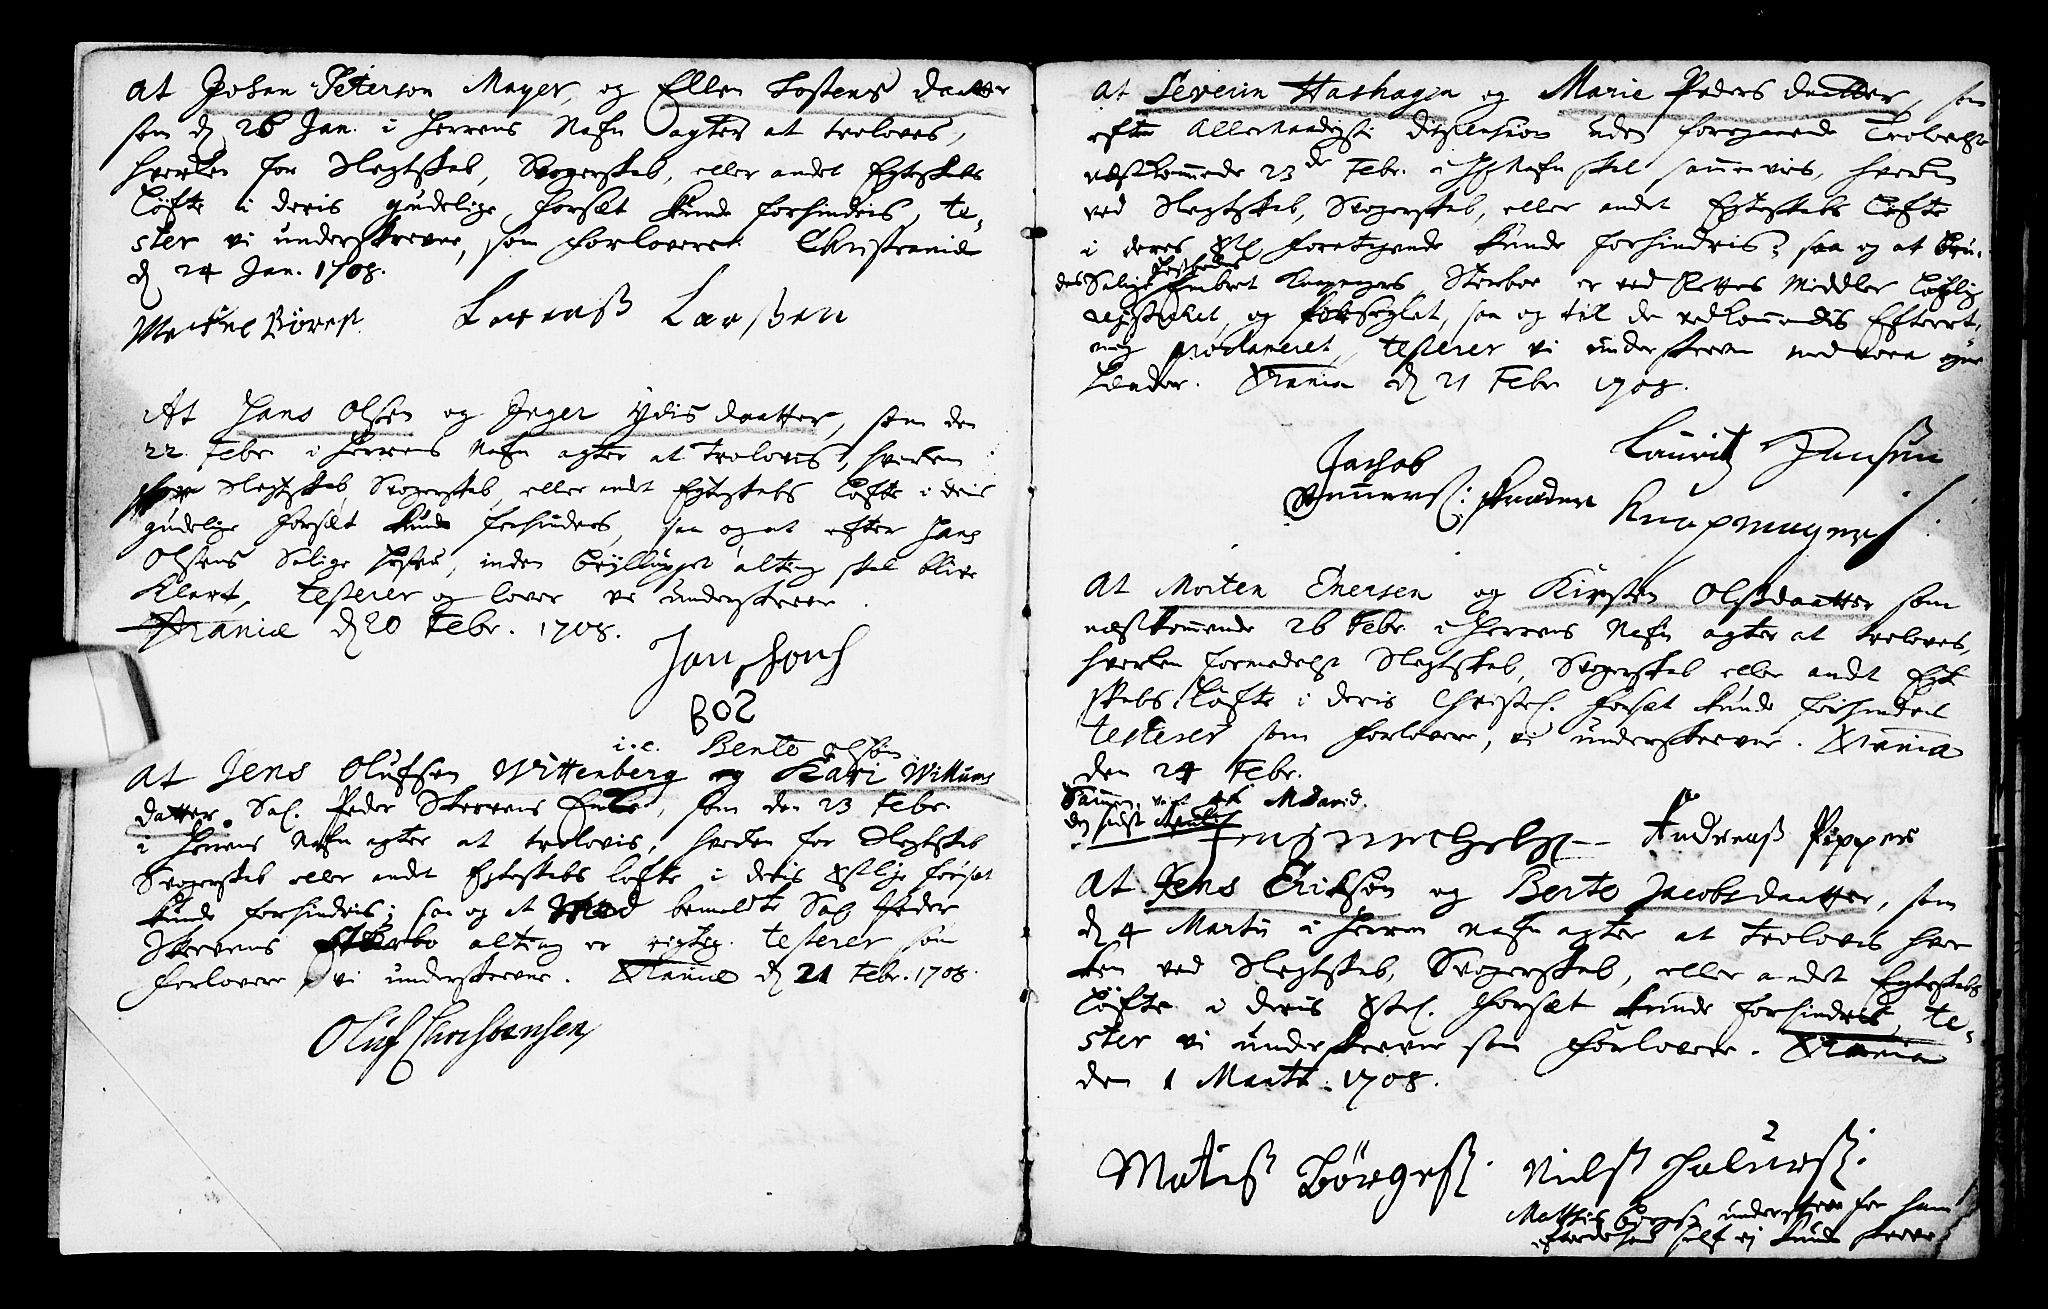 At Johan Peterson Mayer, og Ellen Tostens daatter
som d 26 Jan. i Herrens Nafn agter at troloves,
hverken for Slegtskab, Svogerskab, eller andet Egteskabs
Løfte i deris gudelige forsæt kunde forhindris, te-
ster vi underskrevne, som forlovere. Christianiæ
d 24 Jan. 1708.
Larsen
At Hans Olsen og Inger Ydis daatter, som den
22 Febr. i Herrens Nafn agter at trolovis, hverken
Slegtskab, Svogerskab, eller andt Egteskabs Løfte i deris
gudelige forsæt kunde forhindres, saa og at efter Hans
Olsens Salige Hustru, inden brylluppet alting skal blive
klart, testerer og lover vi underskrevne.
Xraniæ d 20 Febr. 1708.
BOS
i.e. Bente Olssøn
At Jens Olufsen Wittenberg og Kari Willums
datter. Sal. Peder Skrevens Enke, som den 23 Febr.
i Herrens Nafn agter at trolovis, hverken for Slegtskab
Svogerskab eller andt Egteskabs løfte i deris Xstlige forsæt
kunde forhindris; saa og at med bemeldte Sal Peder
Skrevens Sterbo alting er rigtig. testerer som
forlovere vi underskrevne. Xraniæ d 21 Febr. 1708.
Oluf Christensen
At Severin Hashagen og Marie Peders daatter, som
efter Allernaadigste dispensation uden foregaaende Trolovelse
nestkommende 23de Febr. i H Nafn skal sammenvies, hverken
ved Slegtskab, Svogerskab, eller andet Egteskabs Løfte
i deres Xstl. foretagende kunde forhindris; saa og at Bru-
des Salige Embret Sterboe er ved Rettes Middler lovlig
registeret, og forseglet, saa og til de vedkommendis Efterret-
ning proclameret, testerer vi underskrevne med vore egne
hænder. Xrania d 21 Febr 1708.
Lauritz Jansen
Jachob
At Morten Enersen og Kirsten Olsdaatter som
nestkommende 26 Febr. i Herrens Nafn agter at troloves,
hverken formedelst Slegtskab, Svogerskab eller andt Egte
skabs Løfte i deris Christel. forsæt kunde forhindris
testerer som forlovere, vi underskrevne. Xrania
den 24 Febr.
Sammen viet af M David.
den sidst
Andreas Pippers
At Jens Erikson og Berte Jacobsdaatter, som
d 4 Martii i Herrens Nafn agter at trolovis hver
ken ved Slegtskab, Svogerskab, eller andet Egteskabs
Løfte i deris Xstel. forsæt kunde forhindres, te-
ster vi underskrevne som forlovere. Xrania
den 1 Martt. 1708.
Matis Børges. Niels
Mattis underskrev for ham
efterdi hand self ej kunde skrive